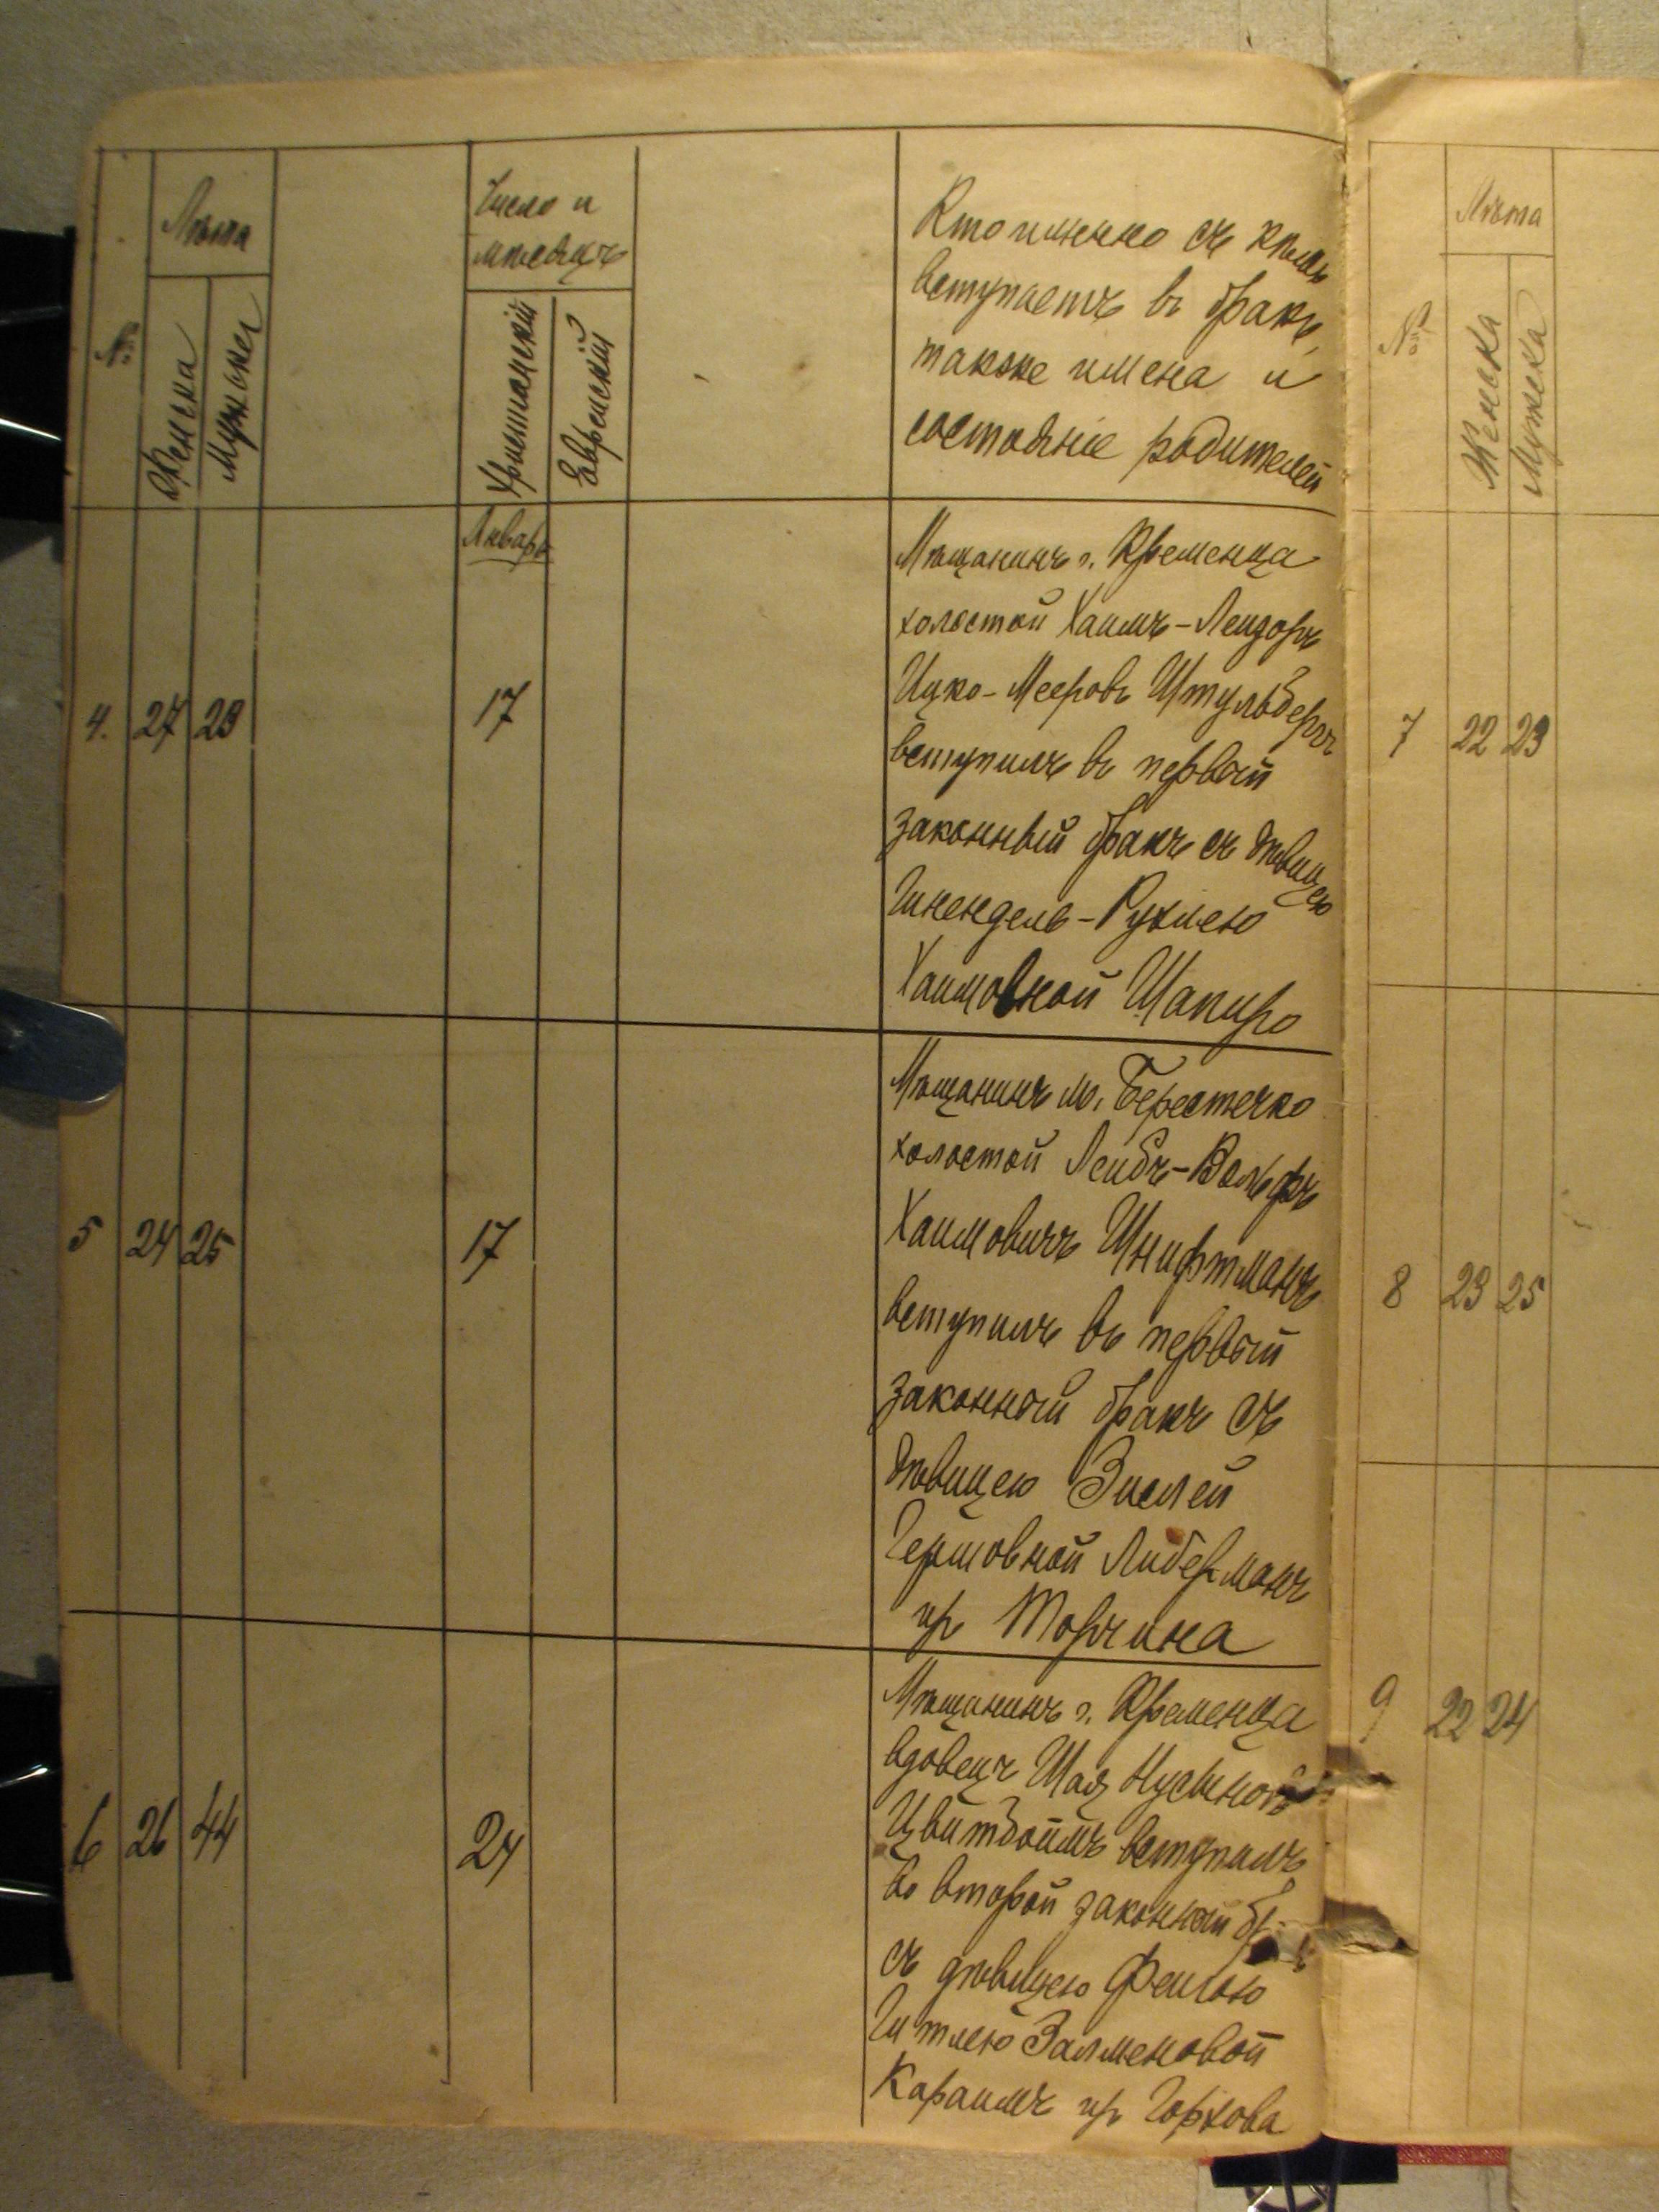 №
Лѣта
Женска
Мужска
Число и
мѣсяцъ
Христіанскій
Еврейскій
Кто именно съ кѣмъ
вступаетъ въ бракъ,
также имена и
состояніе родителей
Январь
4. 27 29 17
Мѣщанинъ г. Кременца
холостой Хаимъ-Лейзоръ
Ицко-Мееровъ Штульбергъ
вступилъ въ первый
законный бракъ съ дѣвицею
Гнендель-Рухлею
Хаимовной Шапиро
5 24 25 17
Мѣщанинъ м. Берестечко
холостой Лейбъ-Вольфъ
Хаимовичъ Шнифтманъ
вступилъ въ первый
законный бракъ съ
дѣвицею Зислей
Гершовной Либерманъ
из Торчина
6 26 44 24
Мѣщанинъ г. Кременца
вдовецъ Шая
Цвитбоймъ вступилъ
во второй законный
съ дѣвицею Фейгою
Гитлею Залмановой
Караимъ из Горхова
№
Лѣта
Женска
Мужска
7 22 23
8 23 25
9 22 24